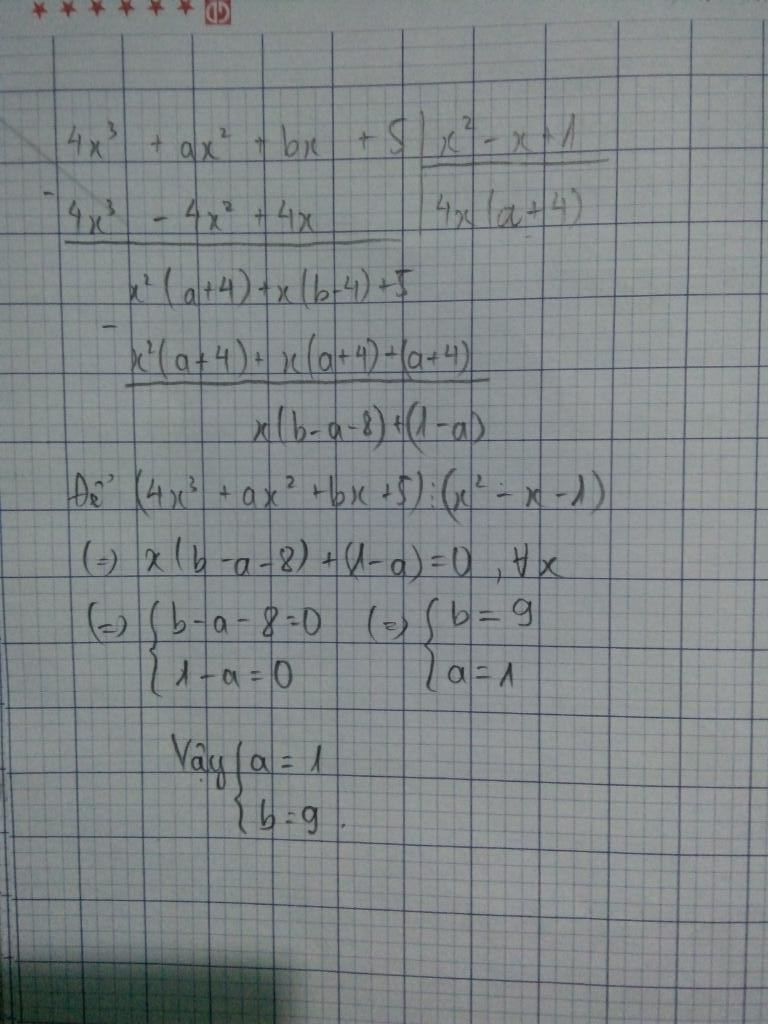 4x³ + ax² + bx + 5 | x² - x + 1
- 4x³ - 4x² + 4x | 4x (a+4)
x² (a+4) + x(b-4) + 5
- x²(a+4) + x(a+4) + (a+4)
x(b-a-8) + (1-a)
Để (4x³ + ax² + bx + 5) ⋮ (x² - x - 1)
(=) x(b-a-8) + (1-a) = 0 , ∀x
(=) { b-a-8=0 (=) { b = 9
1-a=0 a = 1
Vậy { a = 1
b = 9 .